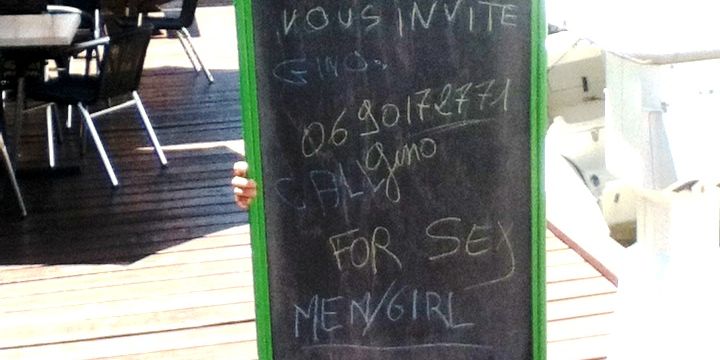 VOUS INVITE
GINO
0690172771
gino
CALL
FOR SEX
MEN/GIRL